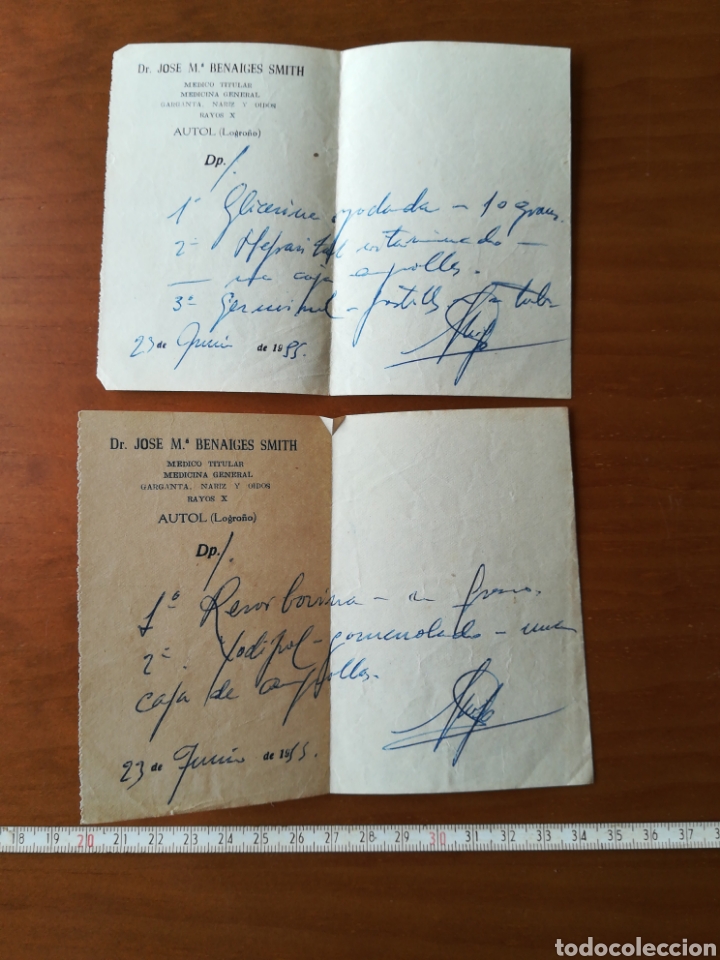 Dr. JOSE M.ª BENAIGES SMITH
MEDICO TITULAR
MEDICINA GENERAL
GARGANTA, NARIZ Y OIDOS
RAYOS X
AUTOL (Logroño)
Dp/.
1º Glicerina yodada – 10 grams.
2º vitaminado –
– una caja ampollas.
3º Germinal – 
23 de Junio de 1955.
Dr. JOSE M.ª BENAIGES SMITH
MEDICO TITULAR
MEDICINA GENERAL
GARGANTA, NARIZ Y OIDOS
RAYOS X
AUTOL (Logroño)
Dp/.
1º un frasco.
2º Yodipol – gomenolado – una
caja de ampollas.
23 de Junio de 1955.
18 19 20 21 22 23 24 25 26 27 28 29 30 31 32 33 34 35 36 37
todocoleccion